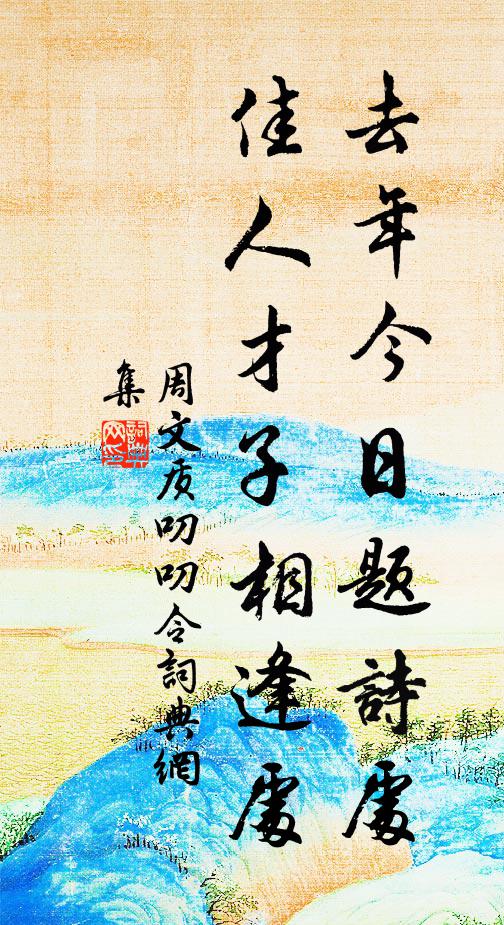 去年今日题詩處
佳人才子相逢處
周文质叨叨令詞典網
集